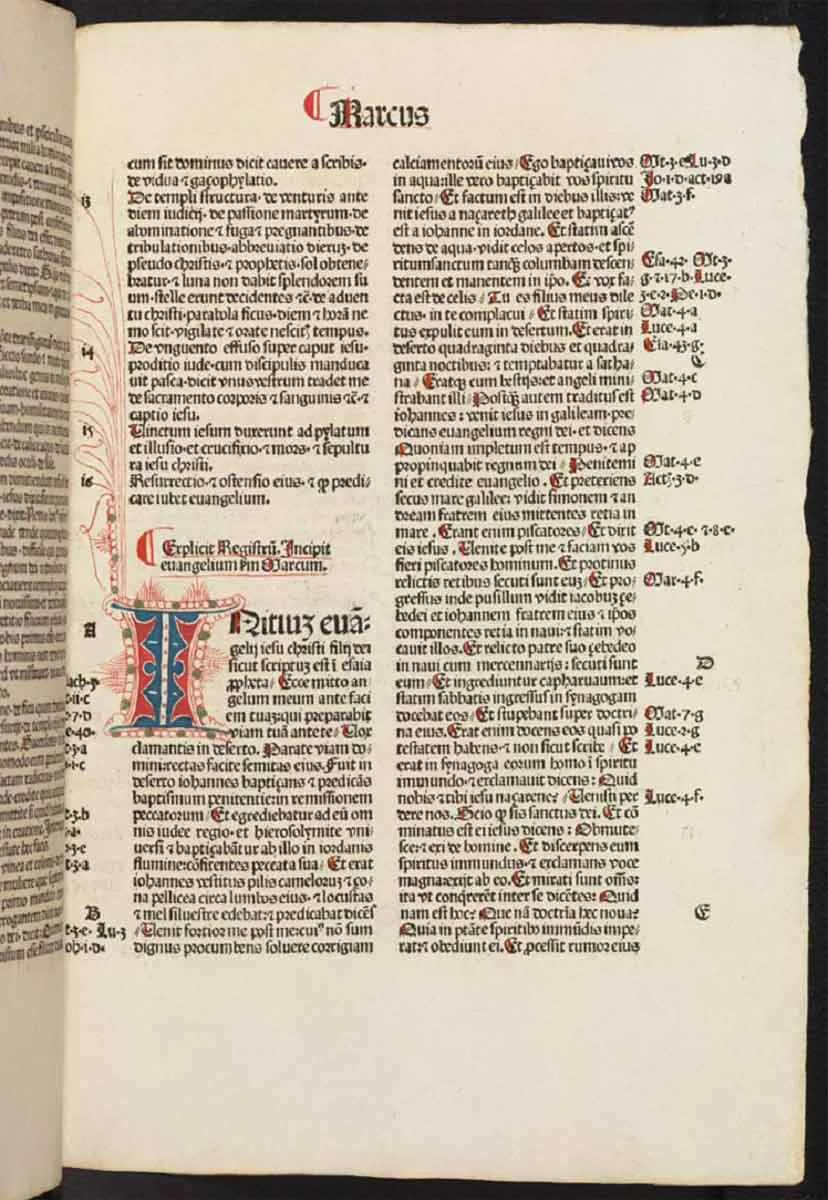 Marcus
cum sit dominus dicit cauere a scribis·
de vidua ⁊ gaçophylatio.
i3
De templi structura·de venturis ante
diem iudicij·de passione martyrum·de
abominatione ⁊ fuga ⁊ pregnantibus·de
tribulationibus·abbreuiatio dieruꝫ·de
pseudo christis·⁊ prophetis·sol obtene-
bratur·⁊ luna non dabit splendorem su
um·stelle erunt decidentes ⁊c̄·de aduen
tu christi·parabola ficus·diem ⁊ horā ne
mo scit·vigilate ⁊ orate nescit̄ tempus.
i4
De vnguento effuso super caput iesu·
proditio iude·cum discipulis manduca
uit pasca·dicit vnus vestrum tradet me
de sacramento corporis ⁊ sanguinis ⁊c̄·⁊
captio iesu.
i5
Vinctum iesum duxerunt ad pylatum
et illusio·et crucifixio·⁊ mors·⁊ sepultu
ra iesu christi.
i6
Resurrectio·⁊ ostensio eius·⁊ ꝙ predi-
care iubet euangelium.
Explicit Registrū. Incipit
euangelium ẜm Marcum.
A
INitiuꝫ euā-
gelij iesu christi filij dei
sicut scriptuꝫ est ī esaia
ꝓpheta⸝ Ecce mitto an-
gelum meum ante faci
em tuaꝫ:qui preparabit
viam tuā ante te⸝ Vox
clamantis in deserto. Parate viam do-
mini:rectas facite semitas eius. Fuit in
deserto iohannes baptiçans ⁊ predicās
baptismum penitentie:in remissionem
peccatorum⸝ Et egrediebatur ad eū om
nis iudee regio·et hierosolymite vni-
uersi ⁊ baptiçabāt̄ ab illo in iordanis
flumine:cōfitentes peccata sua⸝ Et erat
iohannes vestitus pilis cameloruꝫ ⁊ ço-
na pellicea circa lumbos eius·⁊ locustas
⁊ mel siluestre edebat:⁊ predicabat dicēs
B
⸝ Uenit fortior me post me:cuiꝰ nō sum
dignus procumbens soluere corrigiam
calciamentorū eius⸝ Ego baptiçaui vos
in aqua:ille vero baptiçabit vos spiritu
sancto⸝ Et factum est in diebus illis:ve
nit iesus a naçareth galilee:et baptiçatꝰ
est a iohanne in iordane. Et statim ascē
dens de aqua·vidit celos apertos·et spi-
ritumsanctum tanqꝫ columbam descen
dentem et manentem in ip̄o. Et vox fa-
cta est de celis⸝ Tu es filius meus dile
ctus·in te complacui⸝ Et statim spiri-
tus expulit eum in desertum. Et erat in
deserto quadraginta diebus et quadra-
ginta noctibus: ⁊ temptabatur a satha-
na⸝ Eratqꝫ cum bestijs:et angeli mini-
strabant illi⸝ Postqꝫ autem traditus est
iohannes: venit iesus in galileam·pre-
dicans euangelium regni dei·et dicens
Quoniam impletum est tempus·⁊ ap
propinquabit regnum dei⸝ Penitemi
ni et credite euangelio. Et preteriens
secus mare galilee: vidit simonem ⁊ an
dream fratrem eius mittentes retia in
mare. Erant enim piscatores⸝ Et dixit
eis iesus. Uenite post me ⁊ faciam vos
fieri piscatores hominum. Et protinus
relictis retibus secuti sunt euꝫ⸝ Et pro-
gressus inde pusillum vidit iacobuꝫ çe-
bedei et iohannem fratrem eius ⁊ ip̄os
componentes retia in naui:⁊ statim vo-
cauit illos. Et relicto patre suo çebedeo
in naui cum mercennarijs: secuti sunt
eum⸝ Et ingrediuntur capharuaum:et
statim sabbatis ingressus in synagogam
docebat eos⸝ Et stupebant super doctri-
na eius. Erat enim docens eos quasi po
testatem habens·⁊ non sicut scribe⸝ Et
erat in synagoga eorum homo ī spiritu
immundo·⁊ exclamauit dicens: Quid
nobis ⁊ tibi iesu naçarene? Uenisti per
dere nos. Scio ꝙ sis sanctus dei. Et cō
minatus est ei iesus dicens: Obmute-
sce:⁊ exi de homine. Et discerpens eum
spiritus immundus·⁊ exclamans voce
magna:exijt ab eo. Et mirati sunt om̄s:
ita vt conq̄rerēt inter se dicētes: Quid
nam est hoc? Que nā doctrīa hec noua?
Quia in ptāte spiritibꝰ immūdis impe-
rat:⁊ obediunt ei. Et ꝓcessit rumor eius
Mt·3·e Lu·3·d
Jo·1·d·act·19a
Mat·3·f·
Esa·42· Mt·3·
g·⁊·17·b·Luce·
3·e·2·Pe·1·d·
Mat·4·a
Luce·4·a
Esa·43·g·
C
Mat·4·c
Mat·4·d
Mat·4·e
Act·3·d·
Mt·4·e· ⁊·8·e·
Luce·5·b
Mat·4·f·
D
Luce·4·e
Mat·7·g
Luce·2·g
Luce·4·e
Luce·4·f·
E